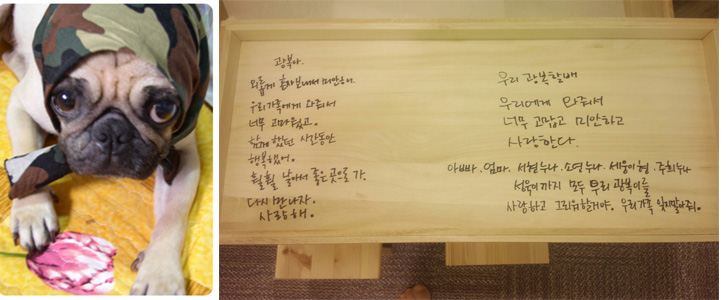 광복아.
외롭게 혼자 보내서 미안하다.
우리가족에게 와줘서
너무 고마웠고.
함께 했던 시간동안
행복했어.
훨훨 날아서 좋은곳으로 가.
다시 만나자.
사랑해.
우리 광복할배
우리에게 와줘서
너무 고맙고 미안하고
사랑한다.
아빠. 엄마. 서현누나. 소영누나. 세웅이형. 주희누나
까지 모두 우리 광복이를
사랑하고 그리워할거야. 우리가족 잊지말아줘.